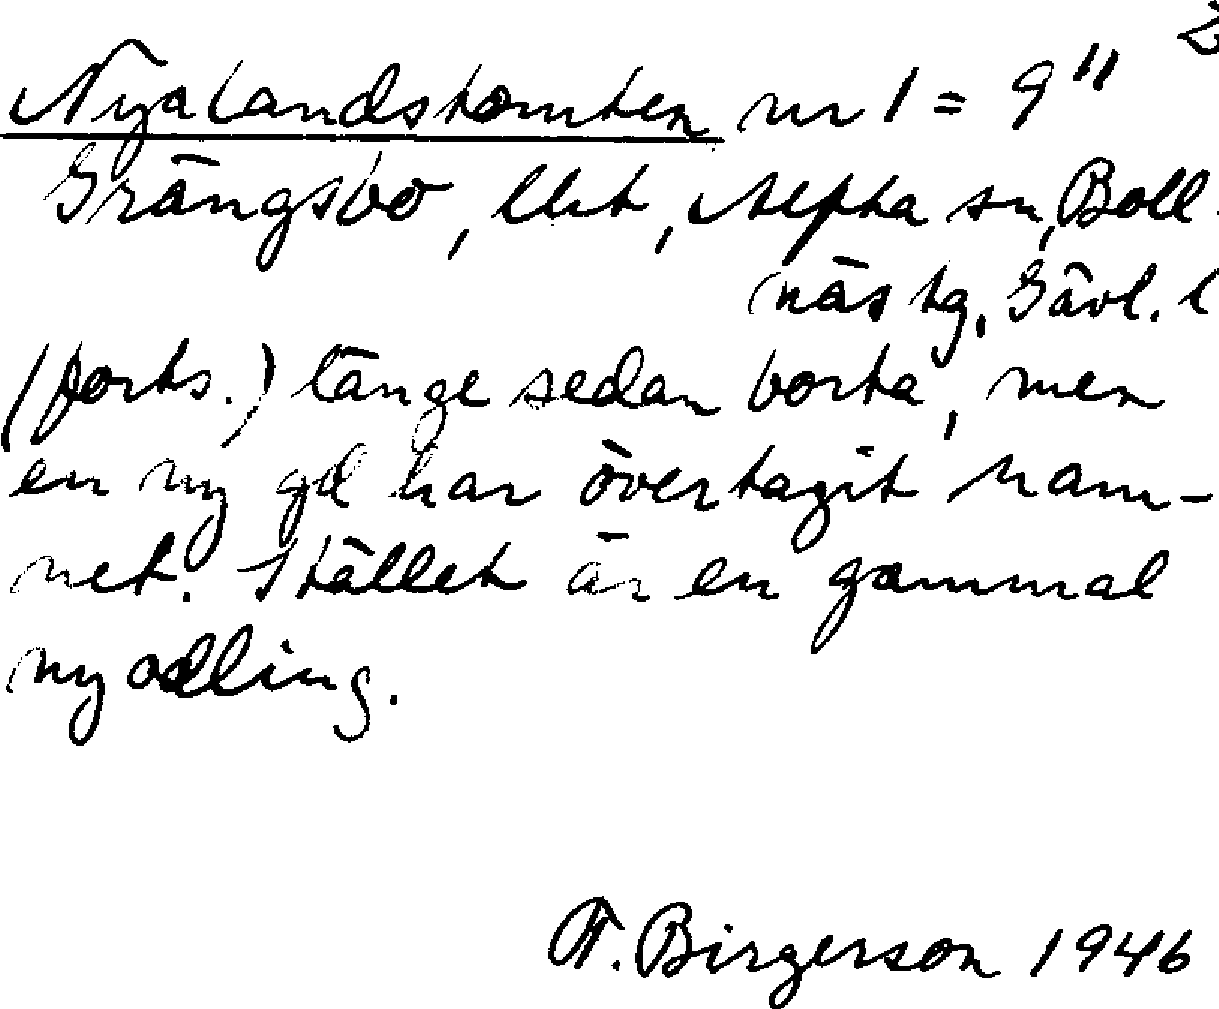 2
Nyalandstomten nr 1 = 9"
Grängsbo, ebt, Alfta sn, Boll-
näs tg, Gävl. l
(forts.) länge sedan borta, men
en ny gd har övertagit nam-
net. Stället är en gammal
nyodling.
F. Birgerson 1946